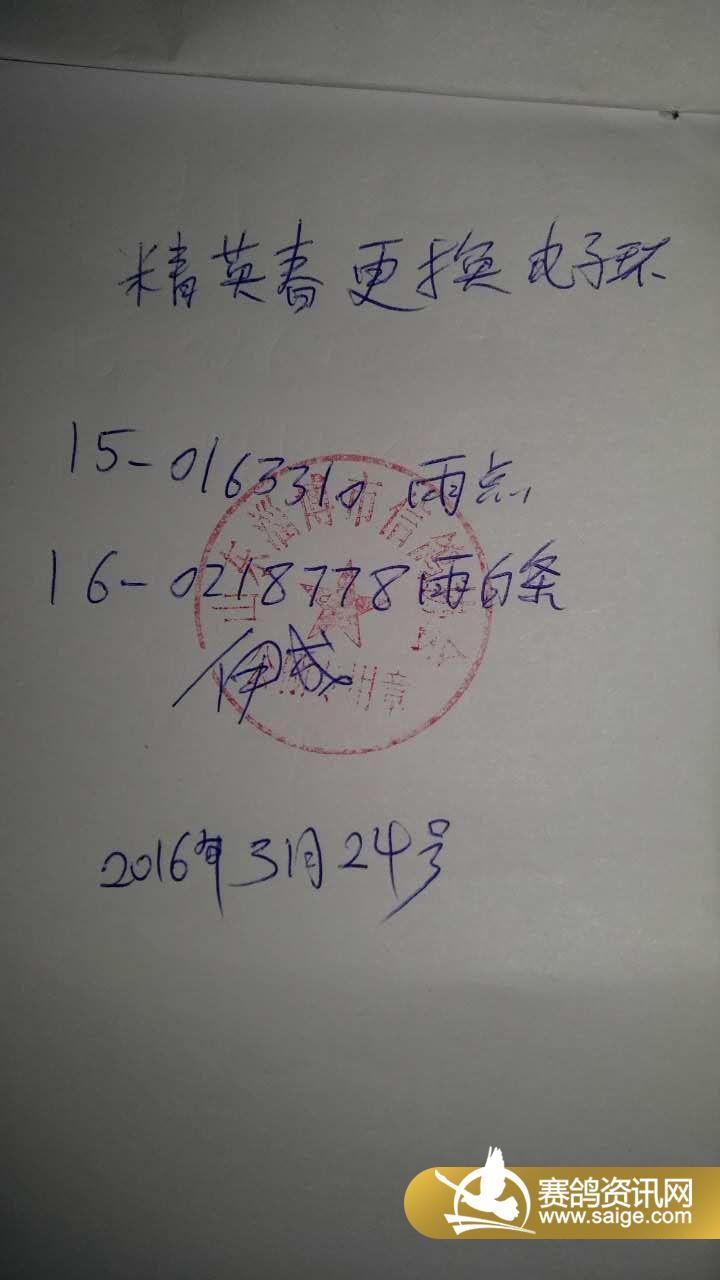 精英春更换电子环
15-0163310 雨点
16-0218778雨白条
山东淄博市信鸽协会
专用章
2016年3月24号
赛鸽资讯网
www.saige.com